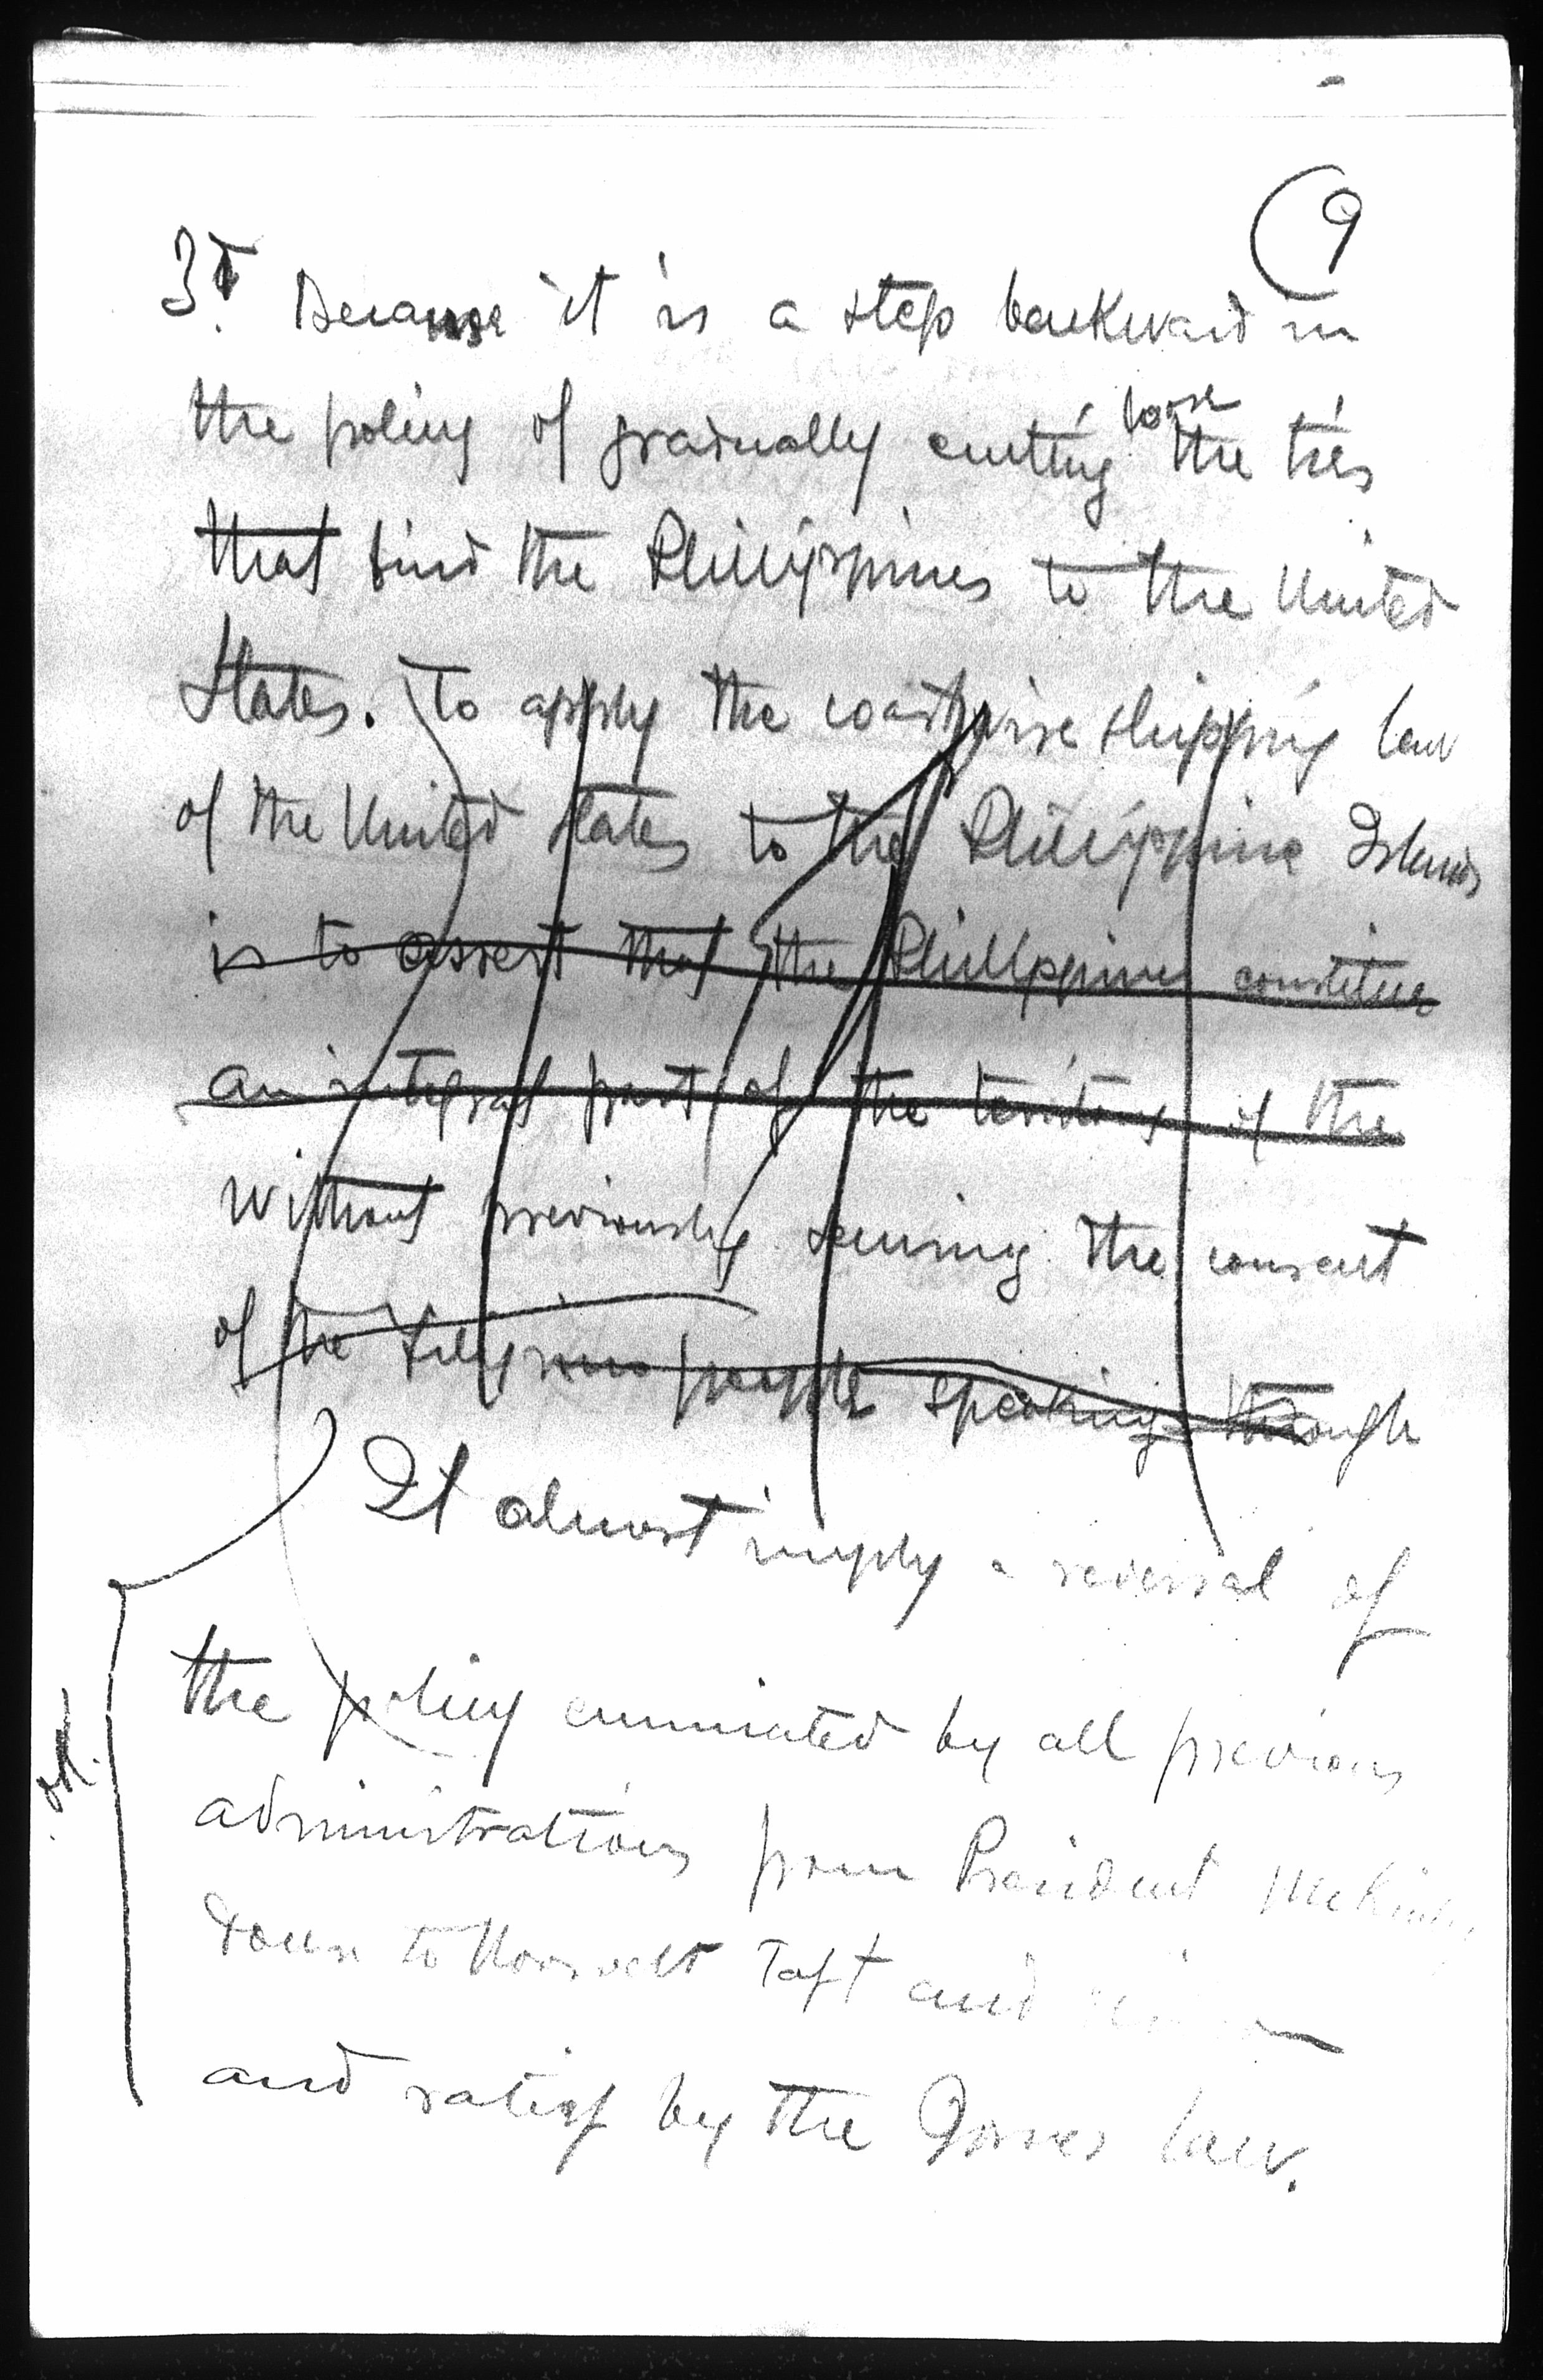 9
3d. Because it is a step backward in
loose
the policy of gradually cutting the ties
that bind the Phillippines to the United
States. To apply the coastwise shipping law
of the United States to the Phillippine Islands
is to assert that the Phillippines constitutes
an integral part of the territory of the
without previously securing the consent
of the Filipino people speaking through
It almost imply a reversal of
the policy enunciated by all previous
administrations from President McKinley
down to Roosvelt Taft and
and ratify by the Jones law.